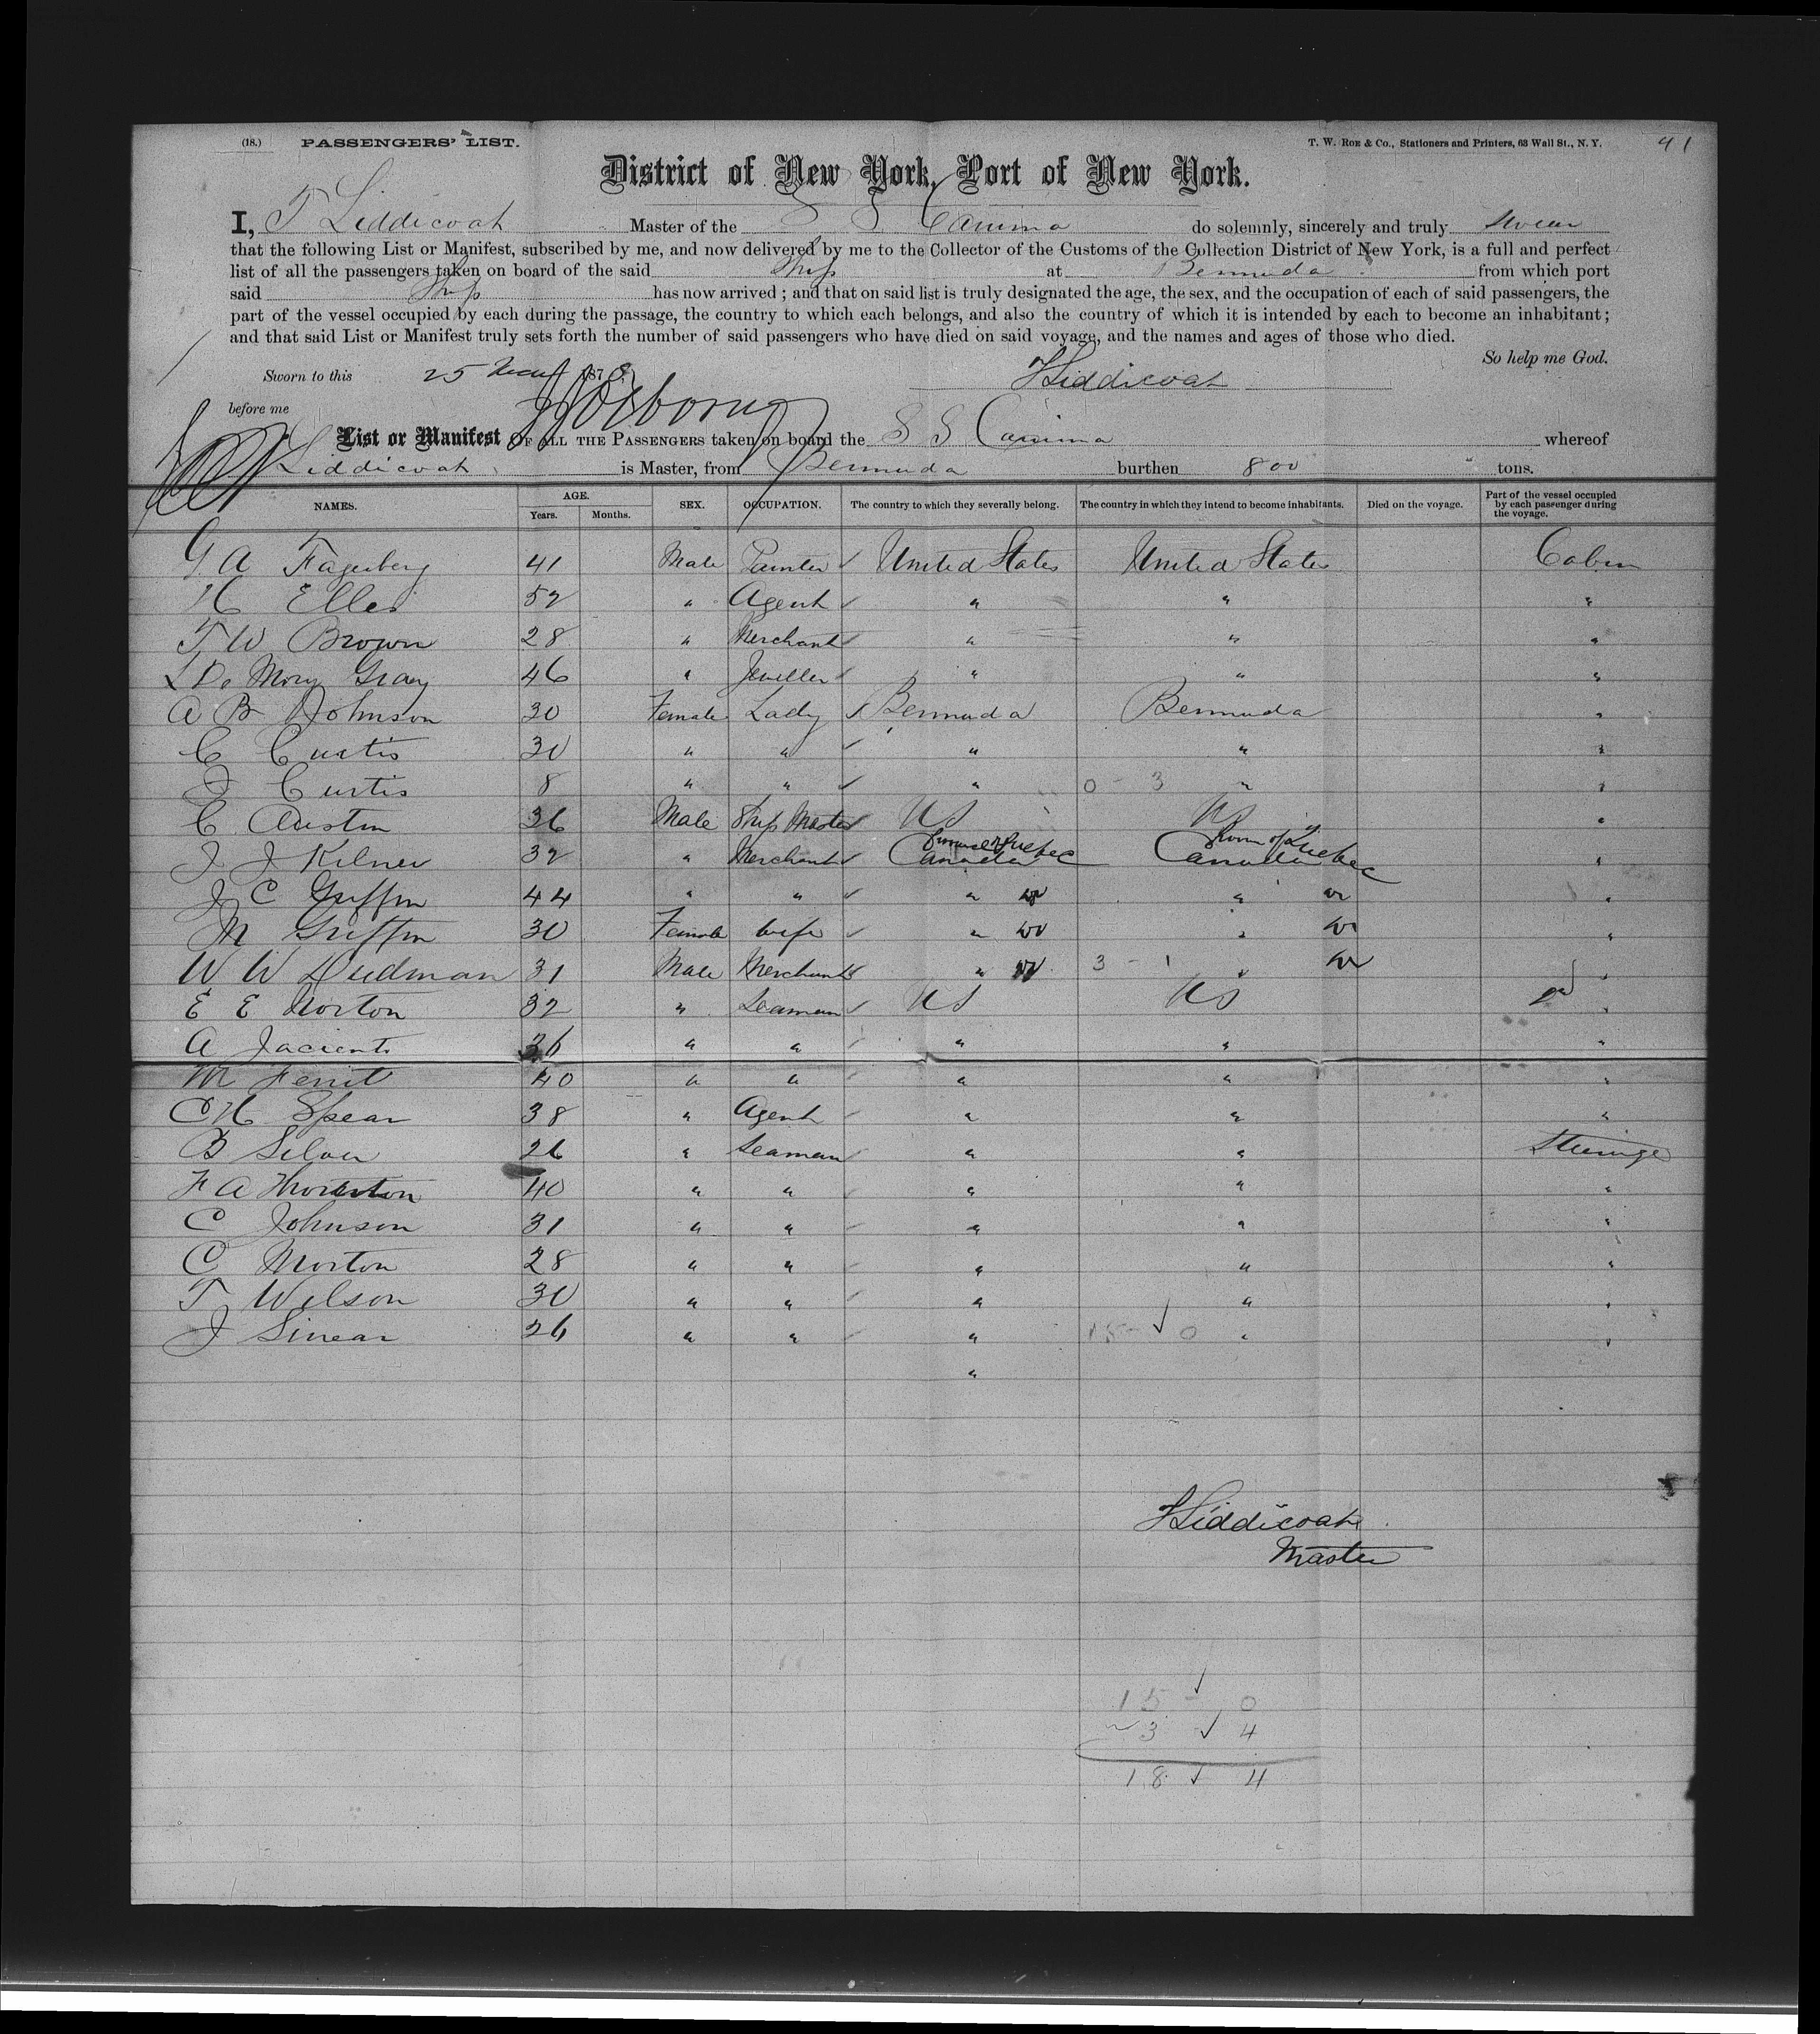 (18.) PASSENGERS' LIST. T. W. ROE & Co., Stationers and Printers, 63 Wall St., N. Y. 41
District of New York, Port of New York.
I, T Liddicoat Master of the S S Canima do solemnly, sincerely and truly swear
that the following List or Manifest, subscribed by me, and now delivered by me to the Collector of the Customs of the Collection District of New York, is a full and perfect
list of all the passengers taken on board of the said Ship at Bermuda from which port
said Ship has now arrived ; and that on said list is truly designated the age, the sex, and the occupation of each of said passengers, the
part of the vessel occupied by each during the passage, the country to which each belongs, and also the country of which it is intended by each to become an inhabitant ;
and that said List or Manifest truly sets forth the number of said passengers who have died on said voyage, and the names and ages of those who died.
So help me God.
Sworn to this 25 1878 TLiddicoat
before me
List or Manifest OF ALL THE PASSENGERS taken on board the S S Canima whereof
Liddicoat is Master, from Bermuda burthen 800 tons.
NAMES. AGE. Years. Months. SEX. OCCUPATION. The country to which they severally belong. The country in which they intend to become inhabitants. Died on the voyage. Part of the vessel occupied by each passenger during the voyage.
G A Fagerberg 41 Male Painter ✓ United States United States Cabin
H Elles 52 " Agent ✓ " " "
T W Brown 28 " Merchant ✓ " " "
L De Mory Gray 46 " Jeweller ✓ " " "
A B Johnson 30 Female Lady ✓ Bermuda Bermuda "
C Curtis 30 " " ✓ " " "
J Curtis 8 " " ✓ " 0 - 3 " "
C Austin 36 Male Ship Master ✓ US US "
J J Kilner 32 " Merchant ✓ Province of Quebec Canada Prov of Quebec Canada "
J C Griffin 44 " " ✓ " " "
M Griffin 30 Female Wife ✓ " " "
W W Dudman 31 Male Merchant ✓ " 3 - 1 " "
E E Norton 32 " Seaman ✓ US US "
A Jacient 36 " " ✓ " " "
M Ferrit 40 " " ✓ " " "
C H Spear 38 " Agent ✓ " " "
B Silver 26 " Seaman " " Steerage
F A Thornton 40 " " ✓ " " "
C Johnson 31 " " ✓ " " "
C Morton 28 " " ✓ " " "
T Wilson 30 " " ✓ " " "
J Sinear 26 " " ✓ " 15 - ✓ 0 " "
"
TLiddicoat
Master
15 - ✓ 0
3 - ✓ 4
18 ✓ 4